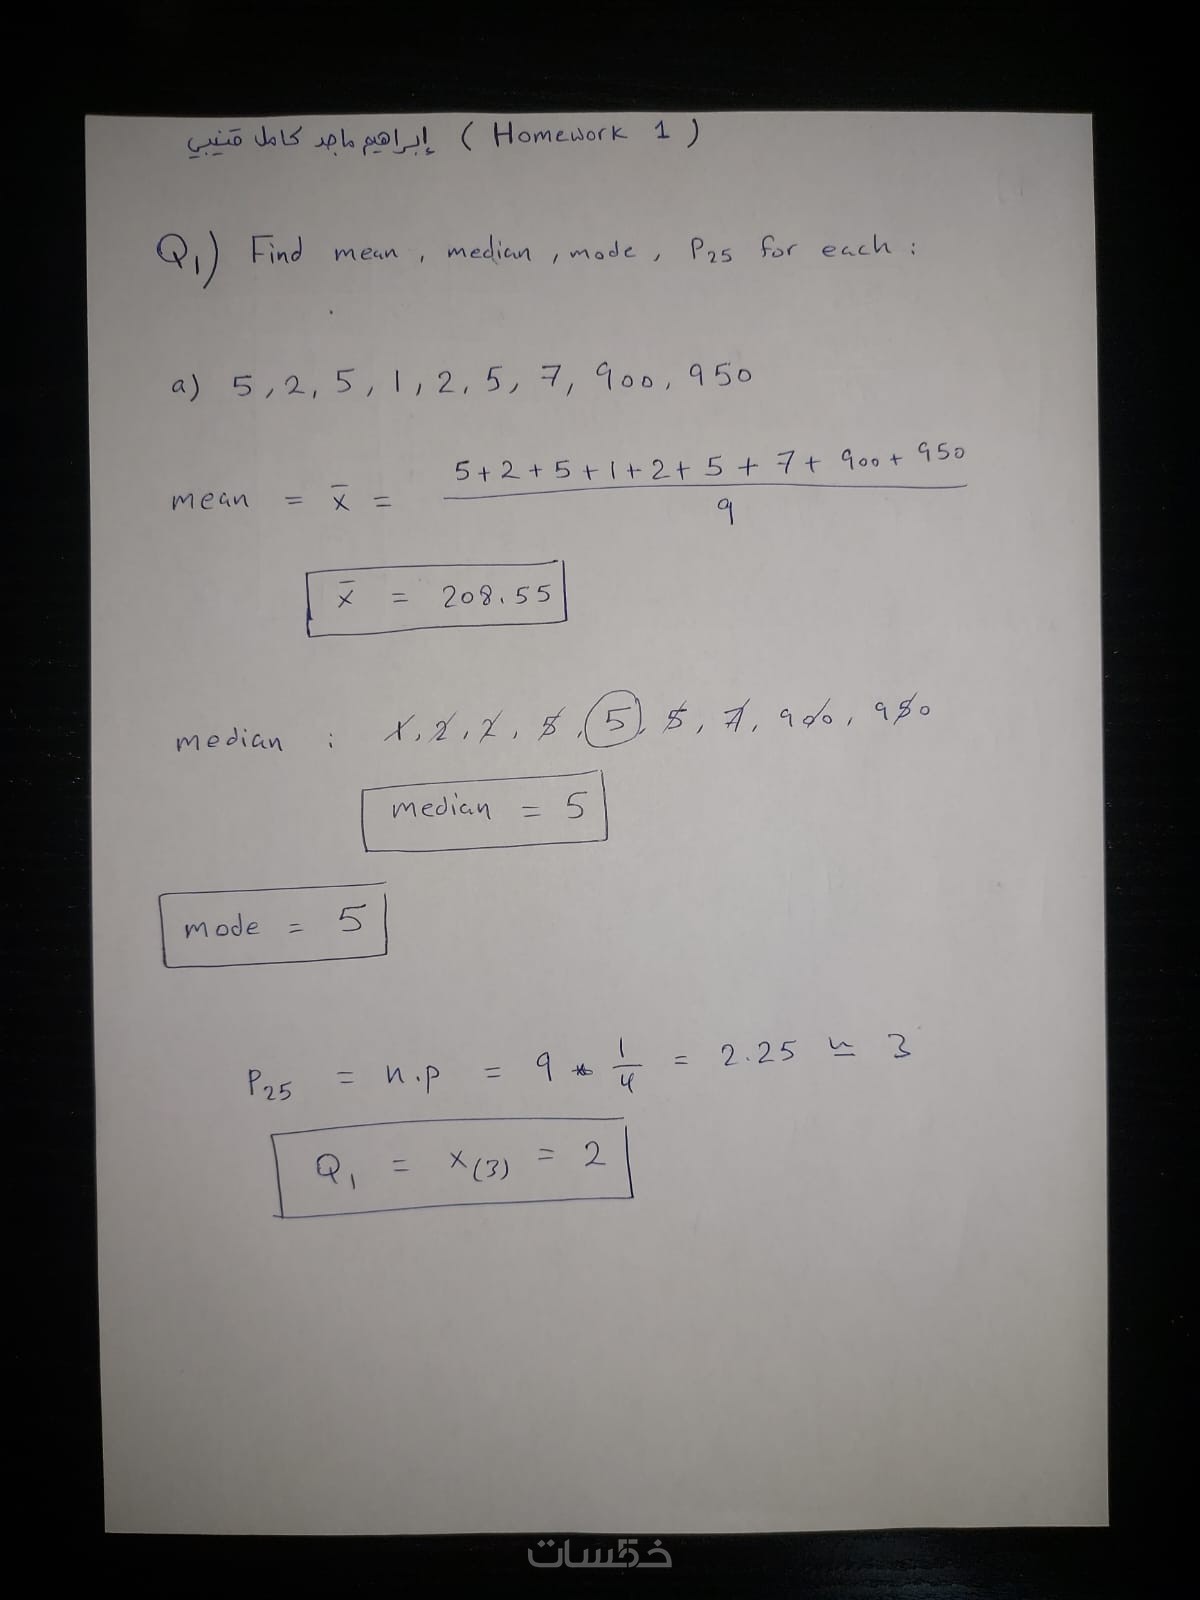 إبراهيم ماجد كامل قنيبي ( Homework 1 )
Q₁) Find mean , median , mode , P₂₅ for each :
a) 5 , 2 , 5 , 1 , 2 , 5 , 7 , 900 , 950
5 + 2 + 5 + 1 + 2 + 5 + 7 + 900 + 950
mean = x̄ =
9
x̄ = 208.55
median : 1 , 2 , 2 , 5 , 5 , 5 , 7 , 900 , 950
median = 5
mode = 5
P₂₅ = n.p = 9 * 1/4 = 2.25 ≃ 3
Q₁ = x₍₃₎ = 2
خمسات